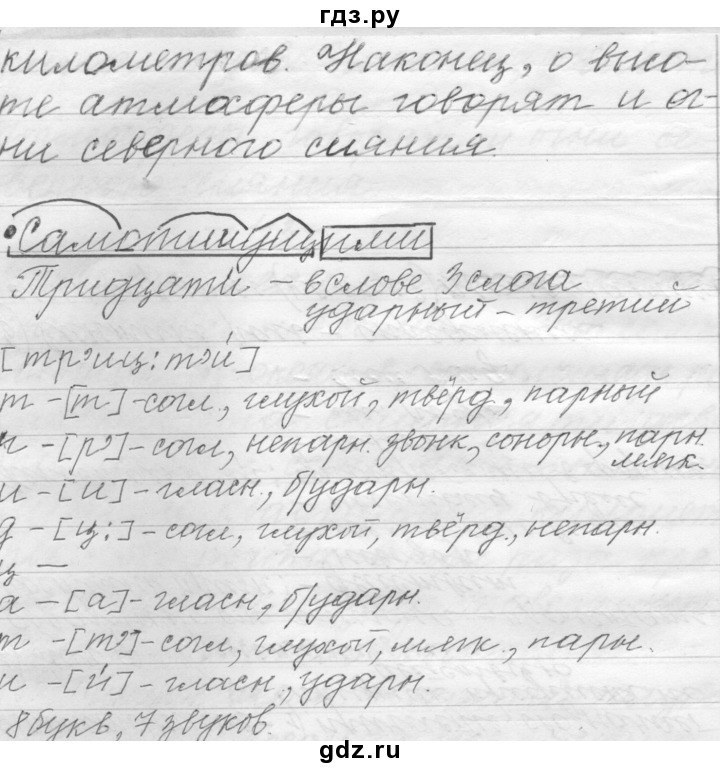 гдз.ру
километров. Наконец, о высо-
те атмосферы говорят и ог-
ни северного сияния.
Самопишущими
Тридцати́ – в слове 3 слога
ударный – третий
[трʼиц:тʼи́]
т – [т] – согл., глухой, твёрд., парный
р – [рʼ] – согл, непарн. звонк., сонорн., парн.
мягк.
и – [и] – гласн., б/ударн.
д – [ц:] – согл, глухой, твёрд., непарн.
ц –
а – [а] – гласн., б/ударн.
т – [тʼ] – согл, глухой, мягк., парн.
и – [и́] – гласн., ударн.
8 букв, 7 звуков.
gdz.ru